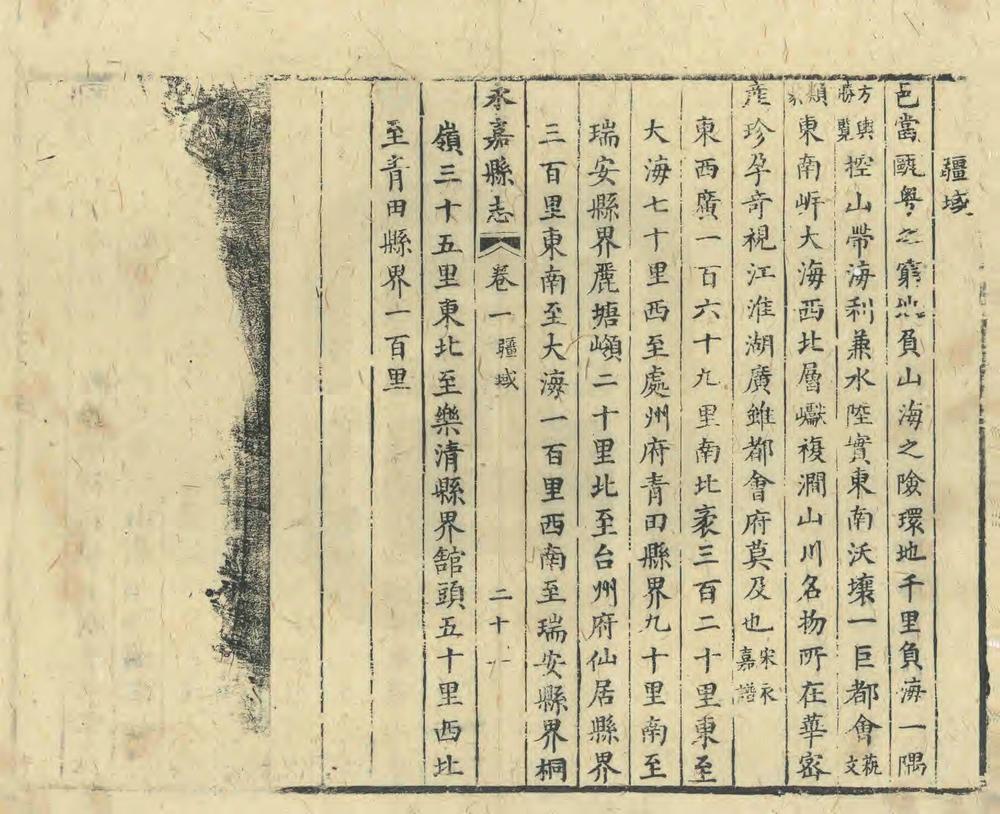 疆域
邑當甌粵之窮地負山海之險環地千里負海一隅
方輿勝覽控山帶海利兼水陸實東南沃壤一巨都會藝文
類聚東南岍大海西北層巘複澗山川名物所在華密
產珍孕奇視江淮湖廣雖都會府莫及也宋永嘉譜
東西廣一百六十九里南北袤三百二十里東至
大海七十里西至處州府青田縣界九十里南至
瑞安縣界麗塘嶺二十里北至台州府仙居縣界
三百里東南至大海一百里西南至瑞安縣界桐
永嘉縣志 卷一 疆域 二十一
嶺三十五里東北至樂清縣界館頭五十里西北
至青田縣界一百里